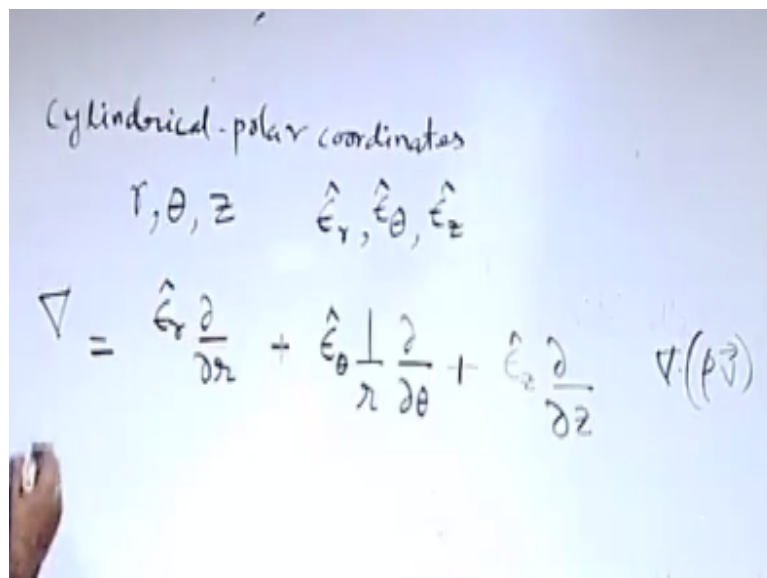 Cylindrical-polar coordinates
r, θ, z ε̂r, ε̂θ, ε̂z
∇ = ε̂r ∂/∂r + ε̂θ 1/r ∂/∂θ + ε̂z ∂/∂z ∇·(ρv⃗)